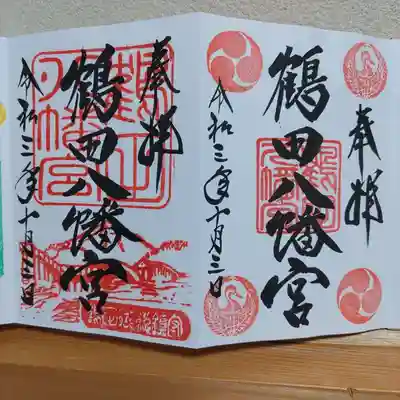 奉拝
鶴田八幡宮
令和三年十月三日
奉拝
鶴田八幡宮
令和三年十月三日